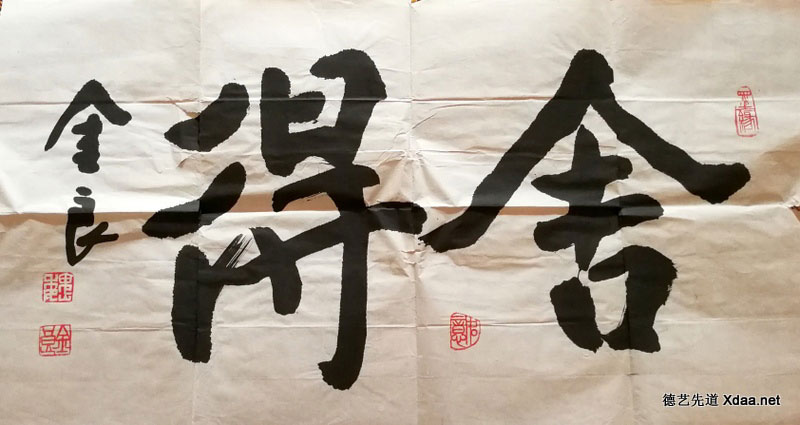 舍得
金良
德艺先道 Xdaa.net